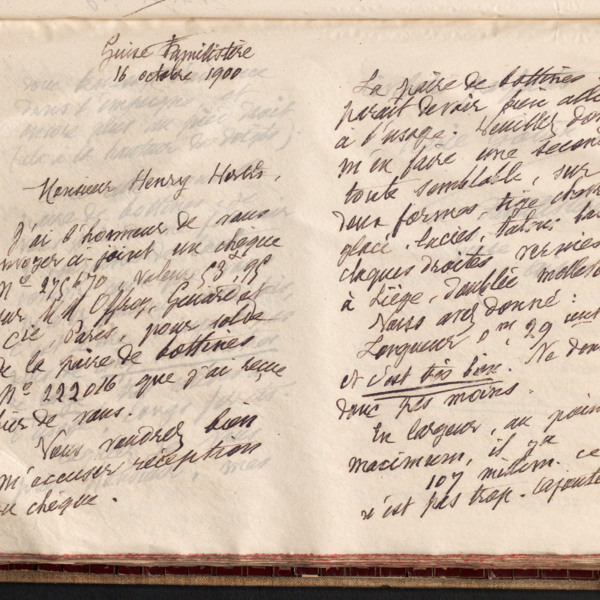 Guise Familistère
16 octobre 1900
Monsieur Henry Herbs,
J'ai l'honneur de vous
envoyer ci-joint un chèque
N° 275670, valeur 53f,95
sur MM Offroy, Guiard et
Cie, Paris, pour solde
de la paire de bottines
N° 222016 que j'ai reçue
hier de vous.
Vous voudrez bien
m'accuser réception
du chèque.
La paire de bottines
paraît devoir bien aller
à l'usage. Veuillez donc
m'en faire une seconde
toute semblable, sur
deux formes, tige
glacé. lacées, talons
claques droites vernies
à Liège, doublée
Vous avez donné :
Longueur 0m,29
et c'est très bien. Ne
donc pas moins.
En largeur, au point
maximum, il y a
107 millim. ce
n'est pas trop.